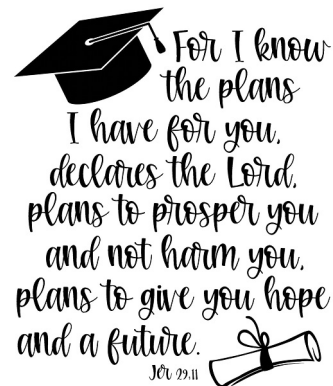 For I know
the plans
I have for you,
declares the Lord,
plans to prosper you
and not harm you,
plans to give you hope
and a future.
Jer 29.11